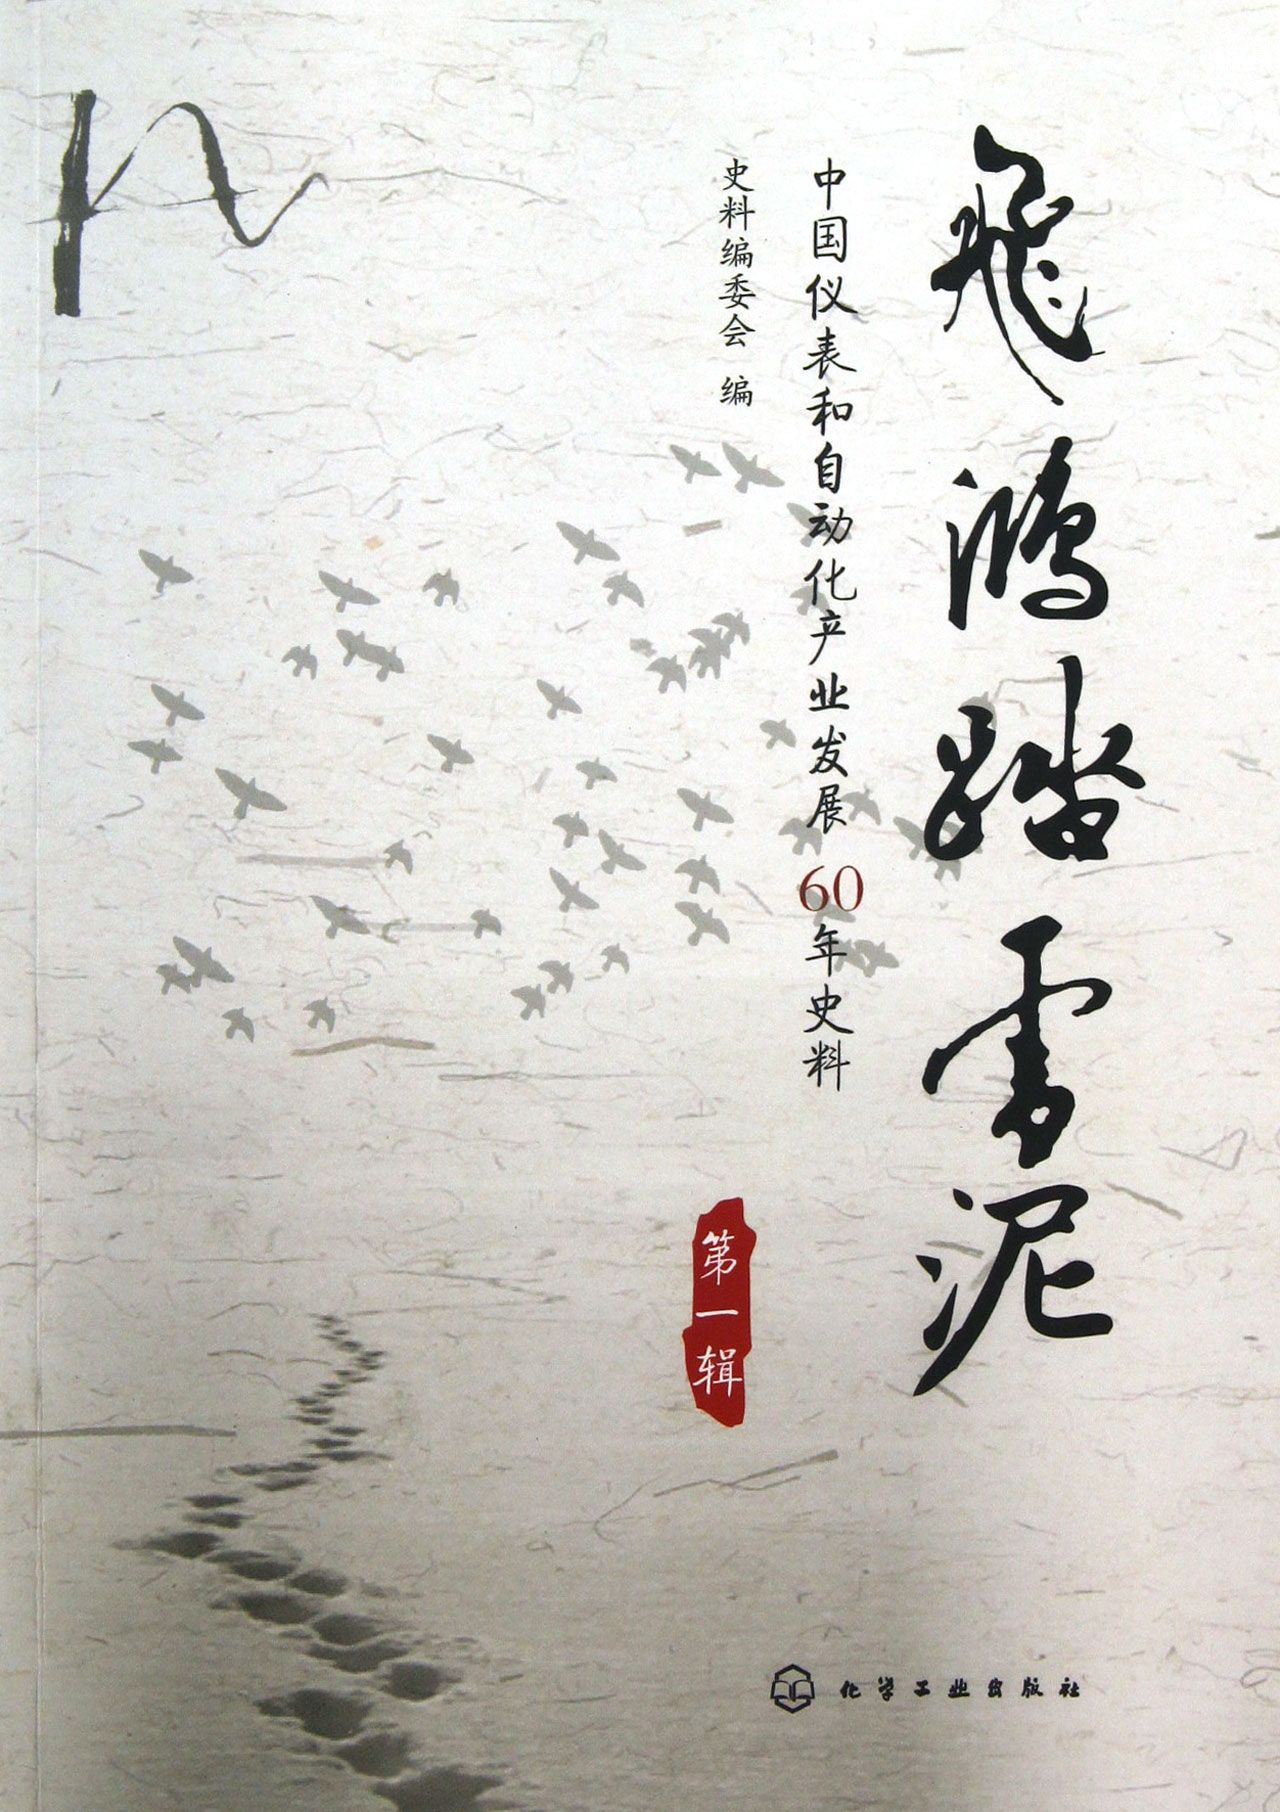 飛鸿踏雪泥
中国仪表和自动化产业发展60年史料
史料编委会 编
第一辑
化学工业出版社